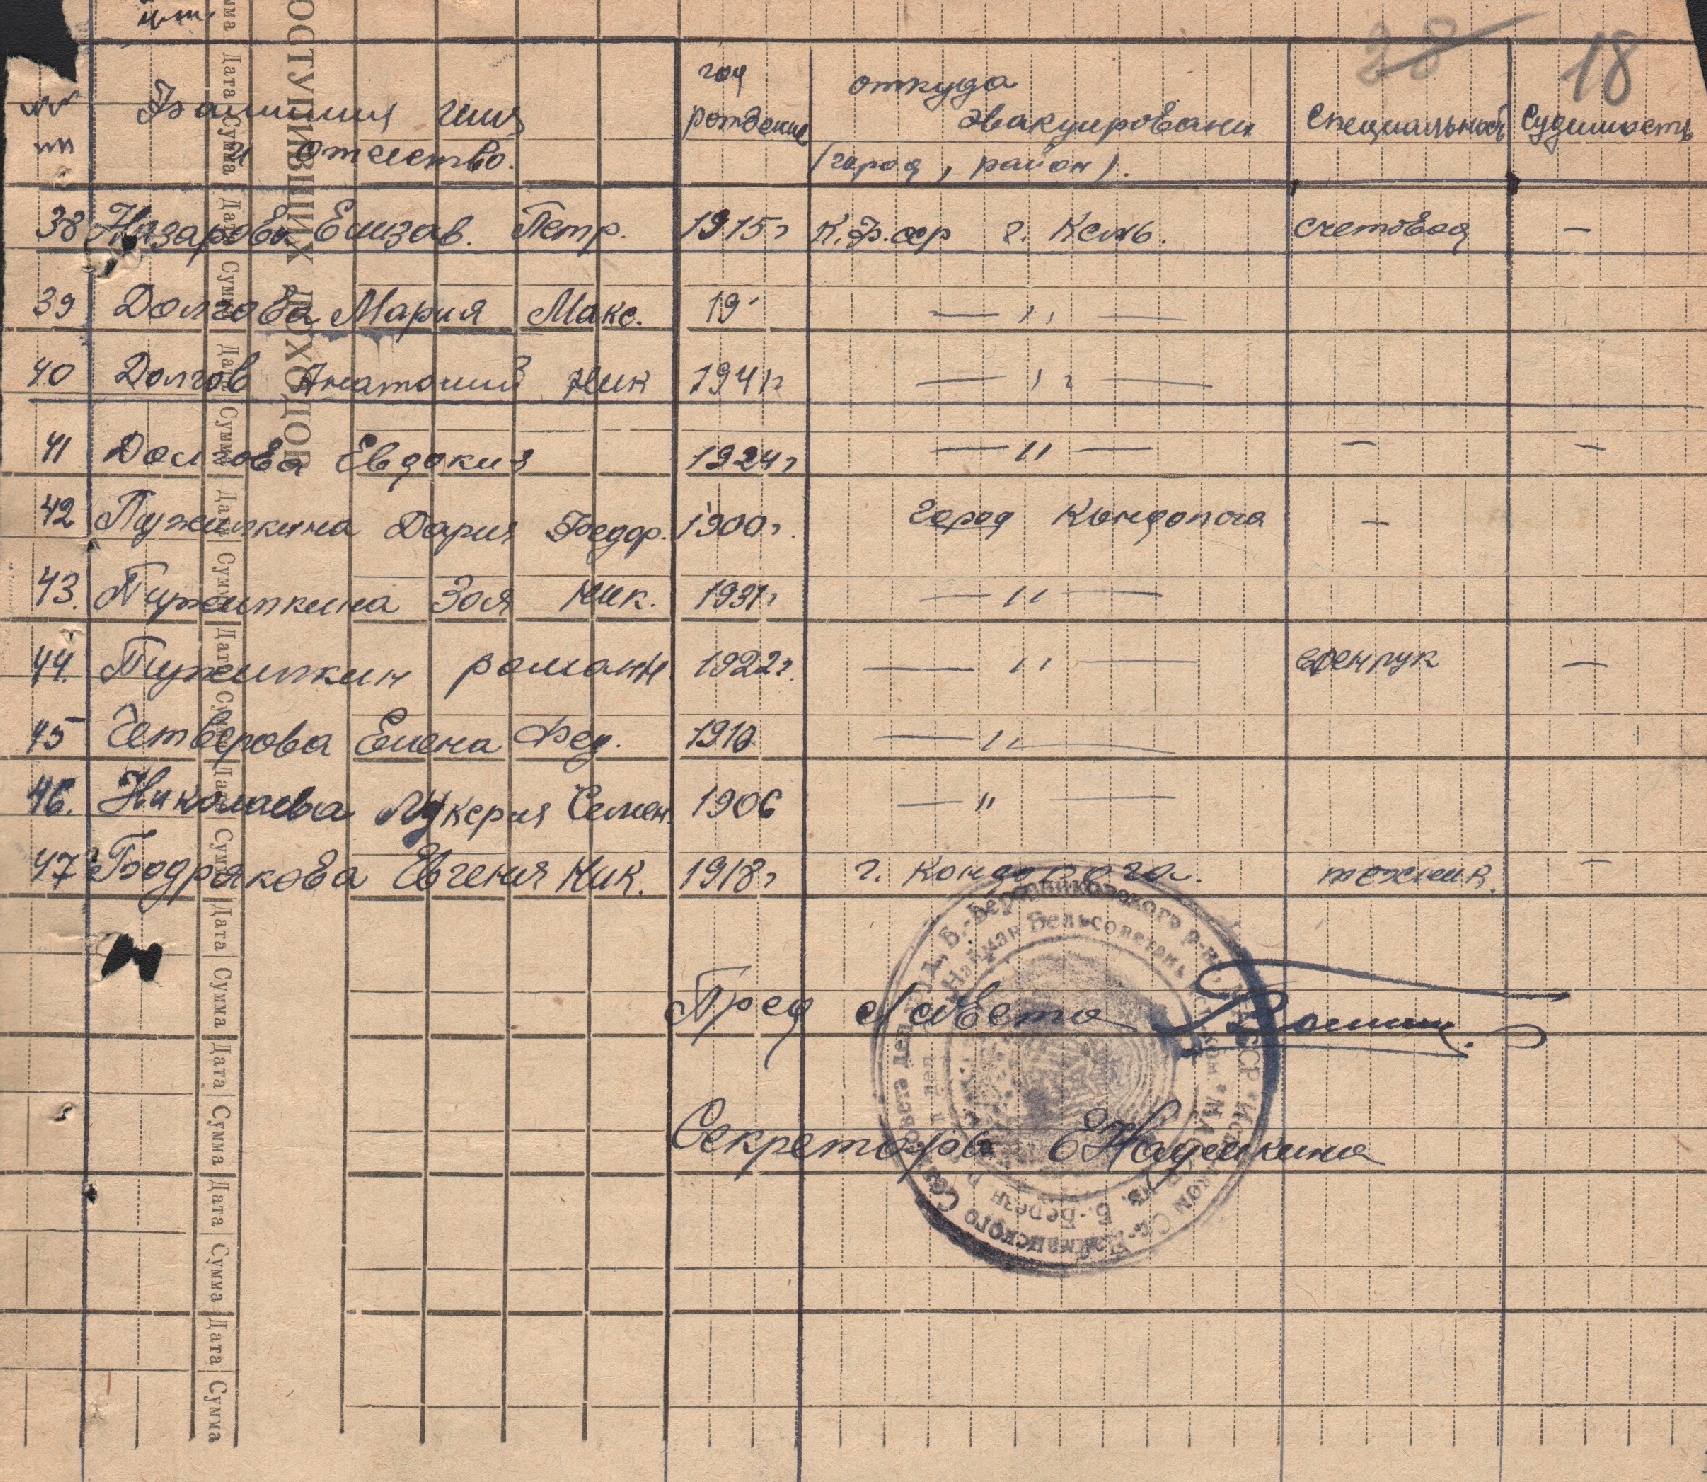 28 18
№№ Фамилия имя год откуда
пп и отчество. рождение эвакуировани специальность судимость
(город, район).
38 Назарова Елизав. Петр. 1915г К.Ф.сср г. Кемь. счетовод —
39 Долгова Мария Макс. 19 — 〃 —
40 Долгов Анатолий Ник 1941г — 〃 —
41 Долгова Евдокия 1924г — 〃 — — —
42 Пужилкина Дария Федор. 1900г. город Кондопога —
43. Пужилкина Зоя Ник. 1931г — 〃 —
44. Пужилкин роман 1922г. — 〃 — —
45 Четверова Елена Фед. 1910 — 〃 —
46. Николаева Лукерия Семен. 1906 — 〃 —
47 Бодрякова Евгения Ник. 1918г г. Кондопога. техник. —
Пред с/совета
Секретарь
ОСТУПИВШИХ ДОХОДОВ
Дата Сумма Дата Сумма Дата Сумма Дата Сумма Дата Сумма Дата Сумма Дата Сумма Дата Сумма Дата Сумма Дата Сумма